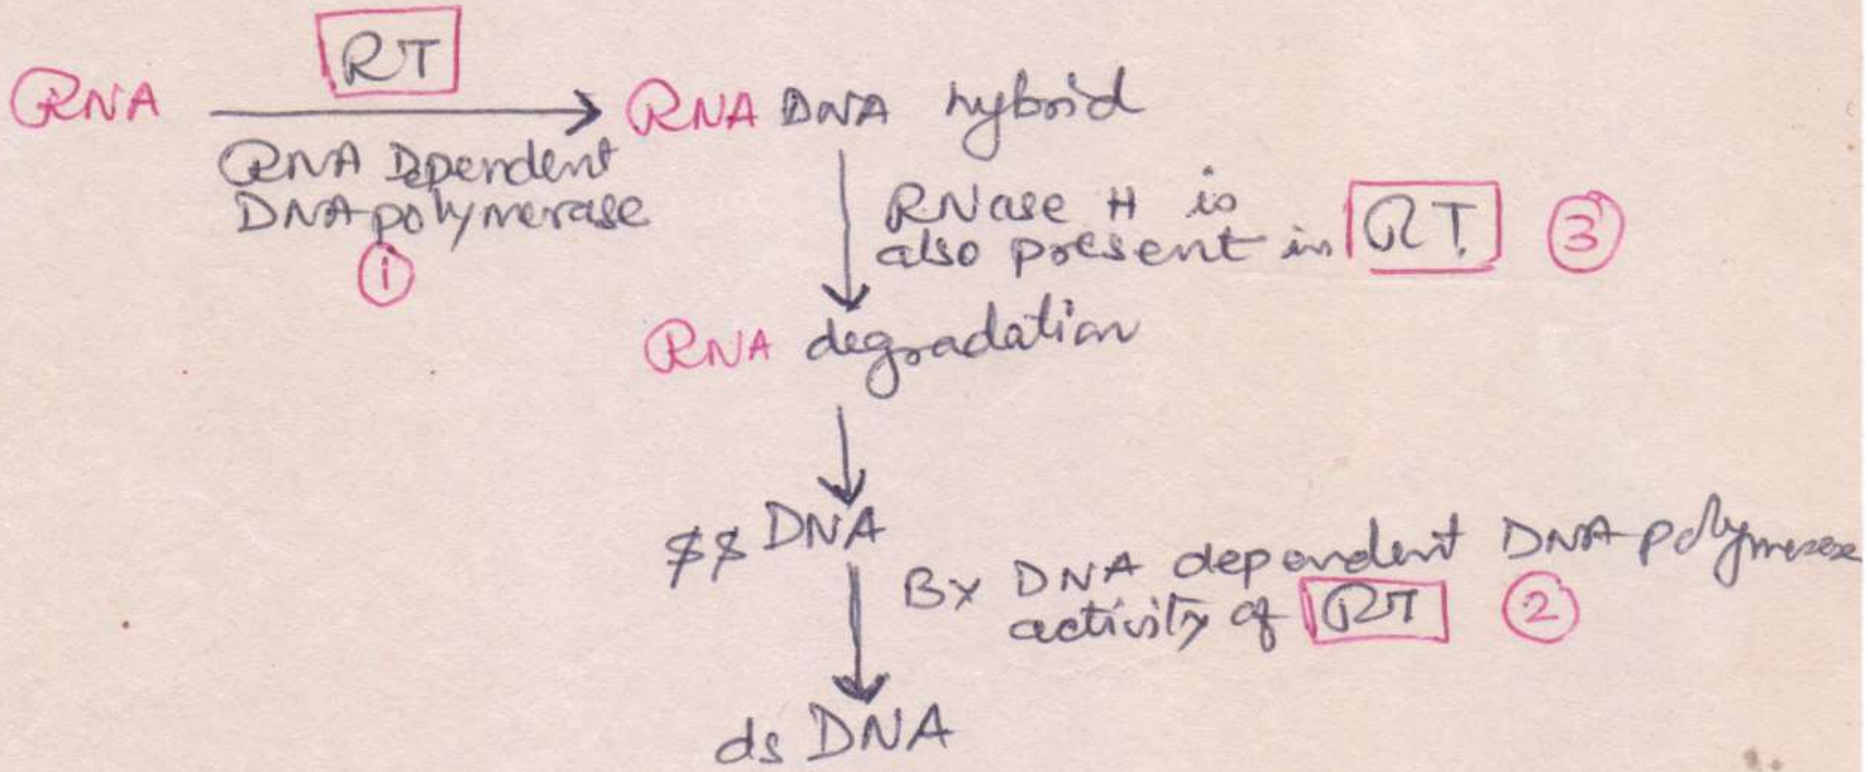 RT
RNA
RNA DNA hybrid
RNA Dependent
DNA polymerase
1
RNase H is
also present in RT
3
RNA degradation
ss DNA
By DNA dependent DNA polymerase
activity of RT
2
ds DNA